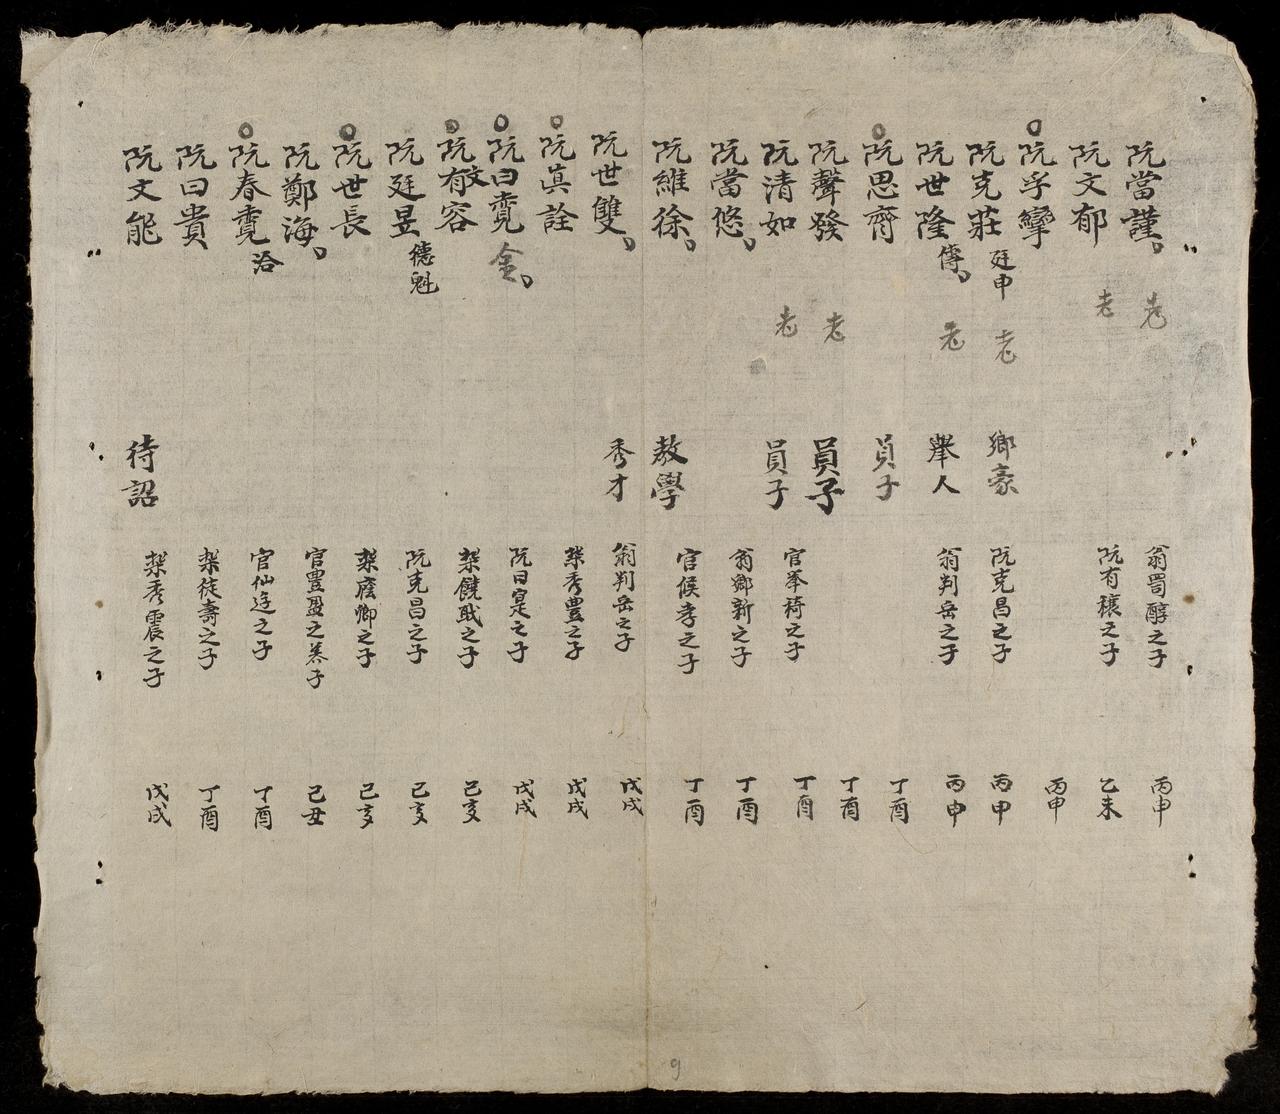 阮當謹 老 翁蜀醇之子 丙申
阮文郁 老 阮有穰之子 乙未
阮孚攣 丙申
阮克莊 廷申 老 鄉豪 阮克昌之子 丙申
阮世隆 傳 老 舉人 翁判岳之子 丙申
阮思齊 員子 丁酉
阮聲發 老 員子 丁酉
阮清如 老 員子 官峯椅之子 丁酉
阮當悠 翁鄉新之子 丁酉
阮維徐 教學 官候孝之子 丁酉
阮世雙 秀才 翁判岳之子 戊戌
阮眞詮 秀豊之子 戊戌
阮曰寬 金 阮曰寔之子 戊戌
阮有文容 饒戢之子 己亥
阮廷昱 德魁 阮克昌之子 己亥
阮世長 卿之子 己亥
阮鄭海 官豊盈之養子 己丑
阮春寬 洽 官仙廷之子 丁酉
阮曰貴 徒壽之子 丁酉
阮文能 待詔 秀震之子 戊戌
9